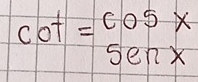 cot = cos x
sen x